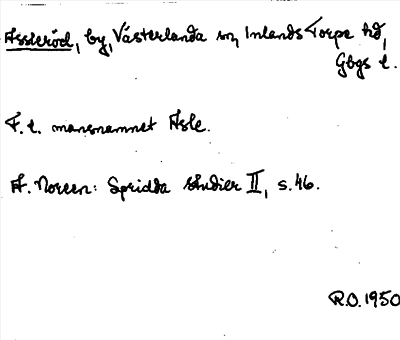 Assleröd, by, Västerlanda sn, Inlands Torpe hd,
Gbgs l.
F. t. mansnamnet Asle.
A. Noreen: Spridda studier II, s. 46.
R.O. 1950